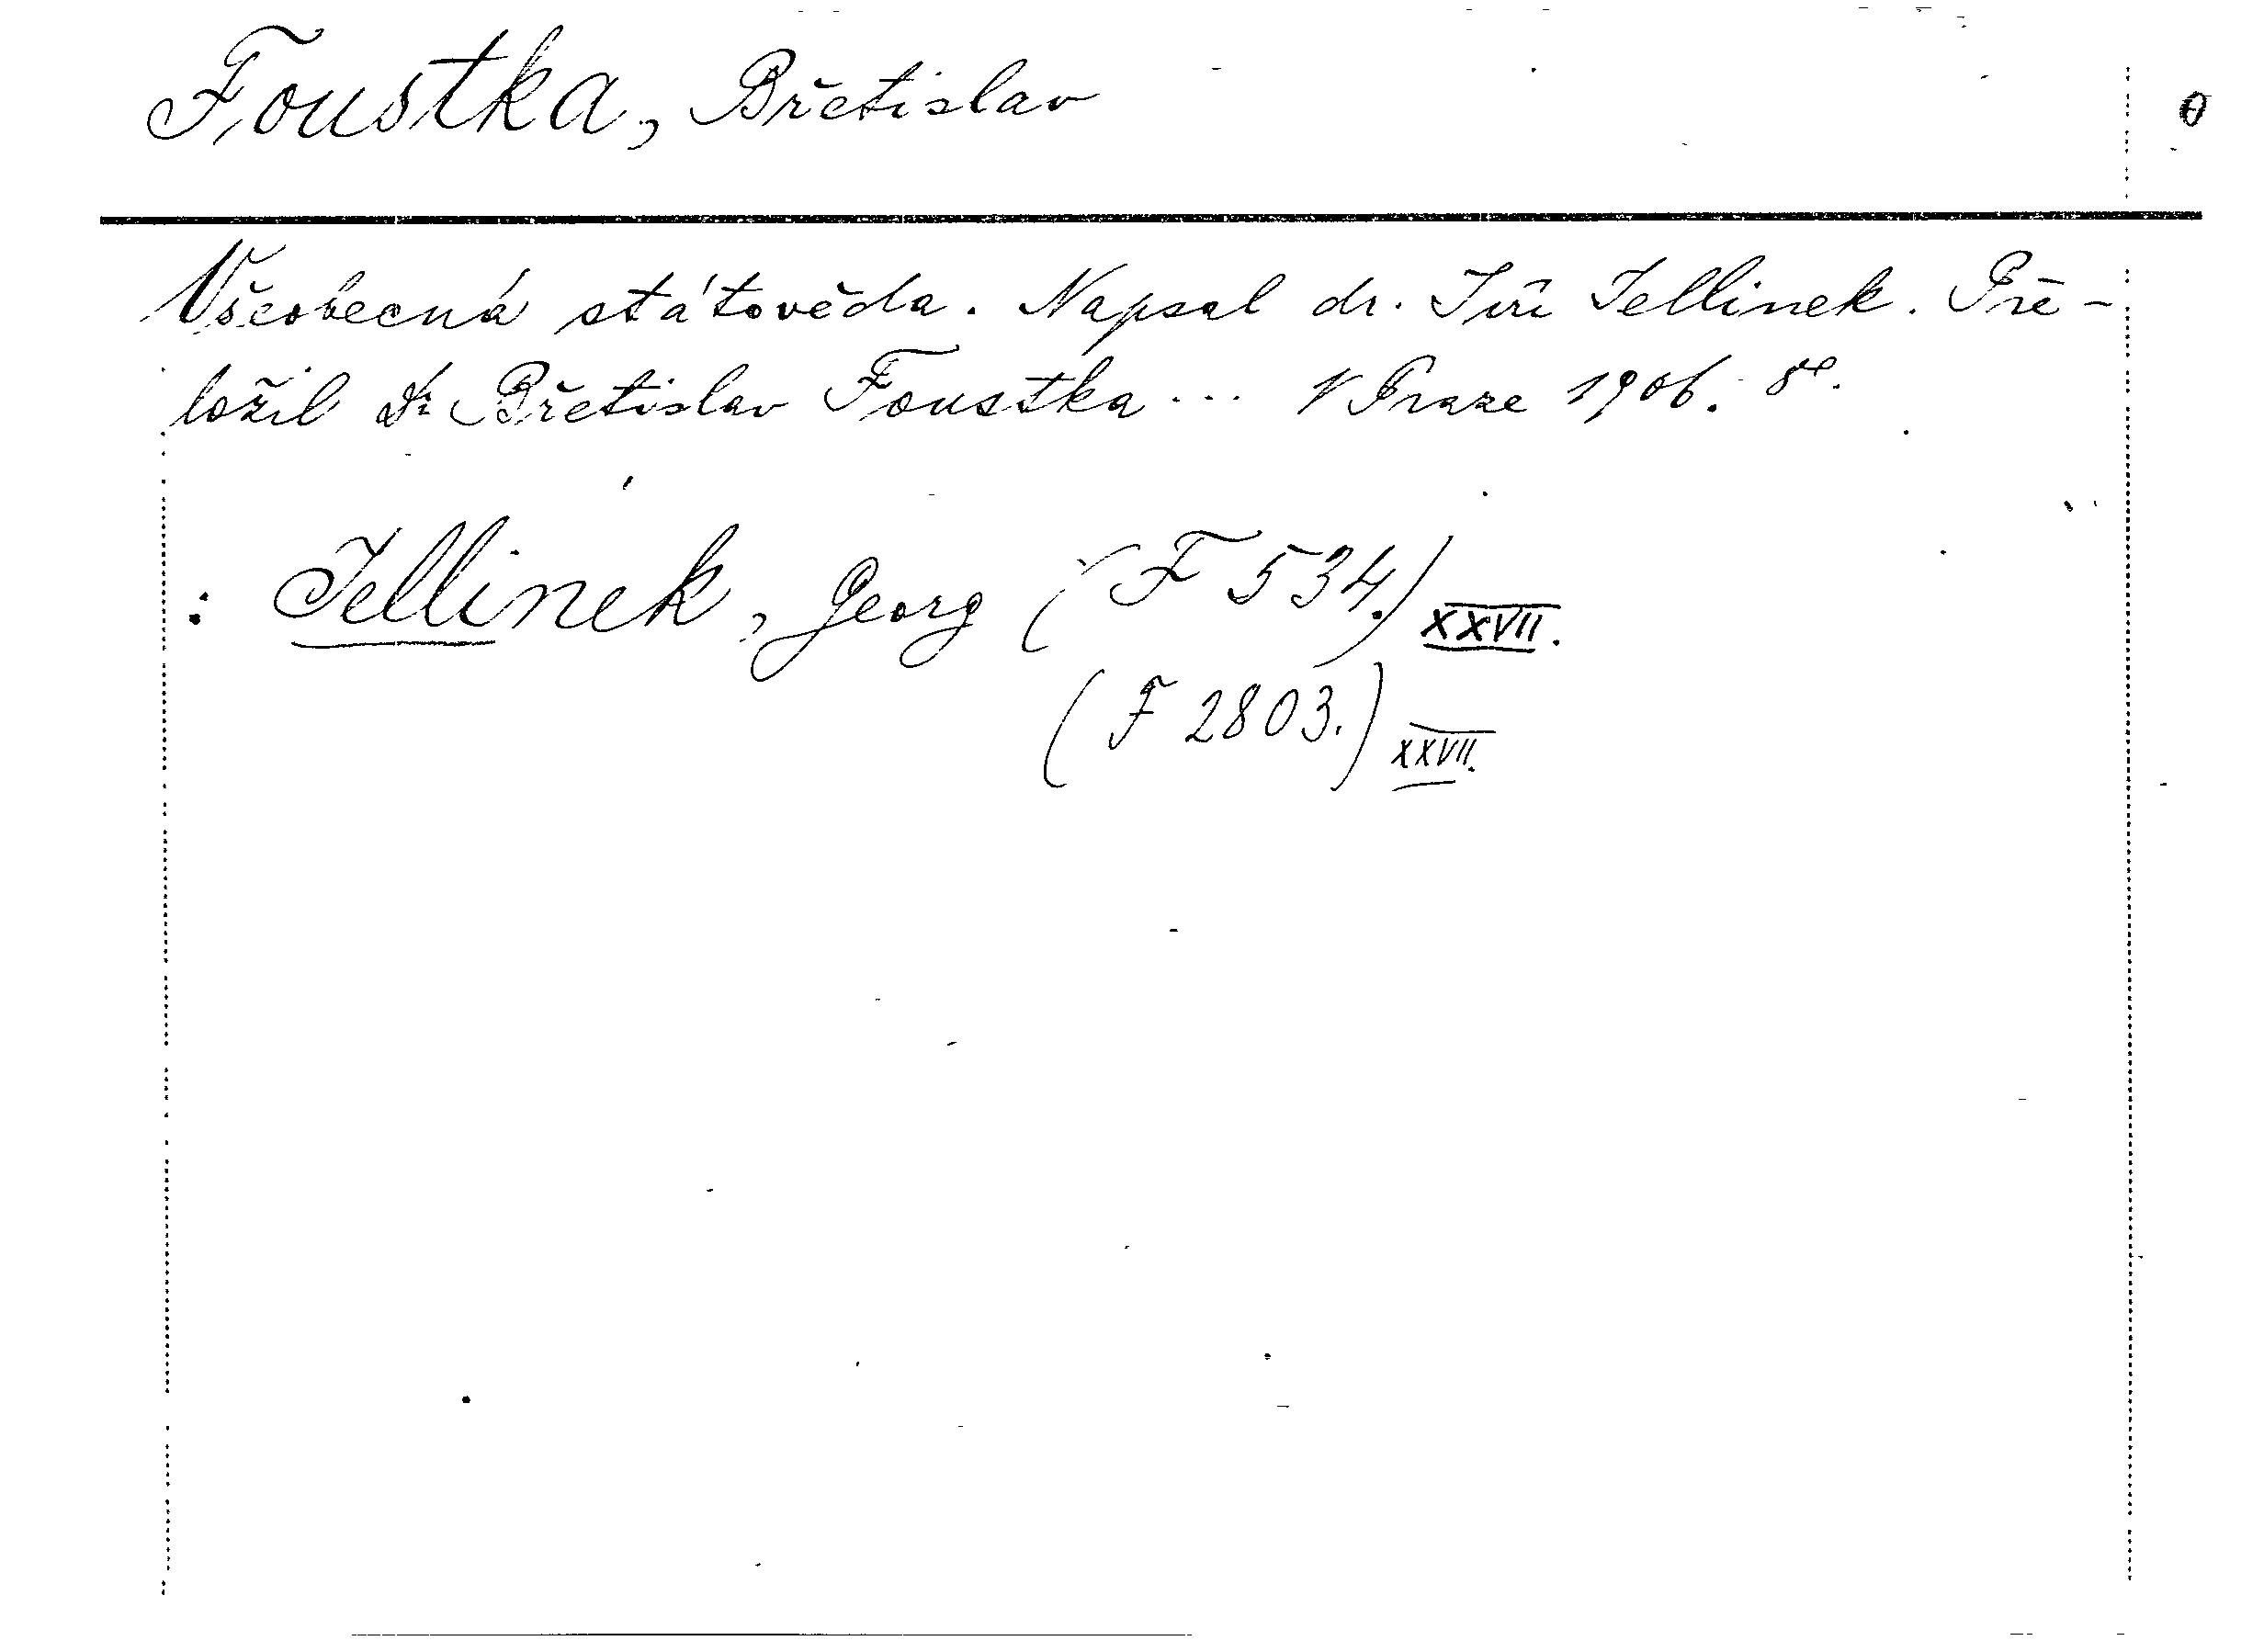 Foustka, Břetislav
Všeobecná státověda. Napsal dr. Jiří Jellinek. Pře-
ložil Dr Břetislav Foustka ... V Praze 1906. 8º.
: Jellinek, Georg (F 534.) XXVII.
(F 2803.) XXVII.